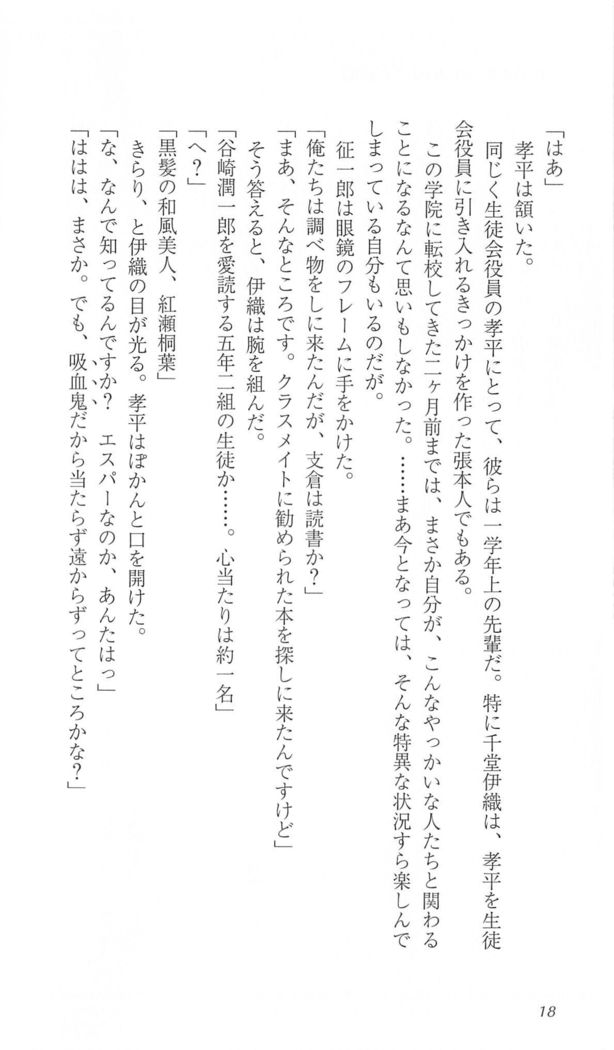 「はあ」
孝平は頷いた。
同じく生徒会役員の孝平にとって、彼らは一学年上の先輩だ。特に千堂伊織は、孝平を生徒
会役員に引き入れるきっかけを作った張本人でもある。
この学院に転校してきた二ヶ月前までは、まさか自分が、こんなやっかいな人たちと関わる
ことになるなんて思いもしなかった。……まあ今となっては、そんな特異な状況すら楽しんで
しまっている自分もいるのだが。
征一郎は眼鏡のフレームに手をかけた。
「俺たちは調べ物をしに来たんだが、支倉は読書か？」
「まあ、そんなところです。クラスメイトに勧められた本を探しに来たんですけど」
そう答えると、伊織は腕を組んだ。
「谷崎潤一郎を愛読する五年二組の生徒か……。心当たりは約一名」
「へ？」
「黒髪の和風美人、紅瀬桐葉」
きらり、と伊織の目が光る。孝平はぽかんと口を開けた。
「な、なんで知ってるんですか？　エスパーなのか、あんたはっ」
「ははは、まさか。でも、吸血鬼だから当たらず遠からずってところかな？」
18